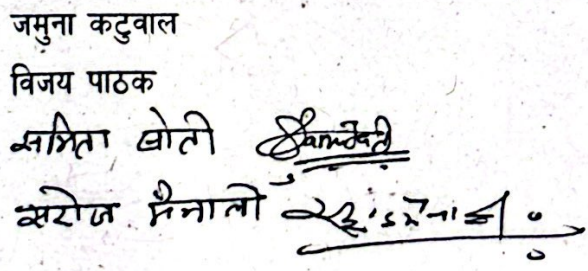 जमुना कटुवाल
विजय पाठक
समिता खोती
सरोज मैनाली